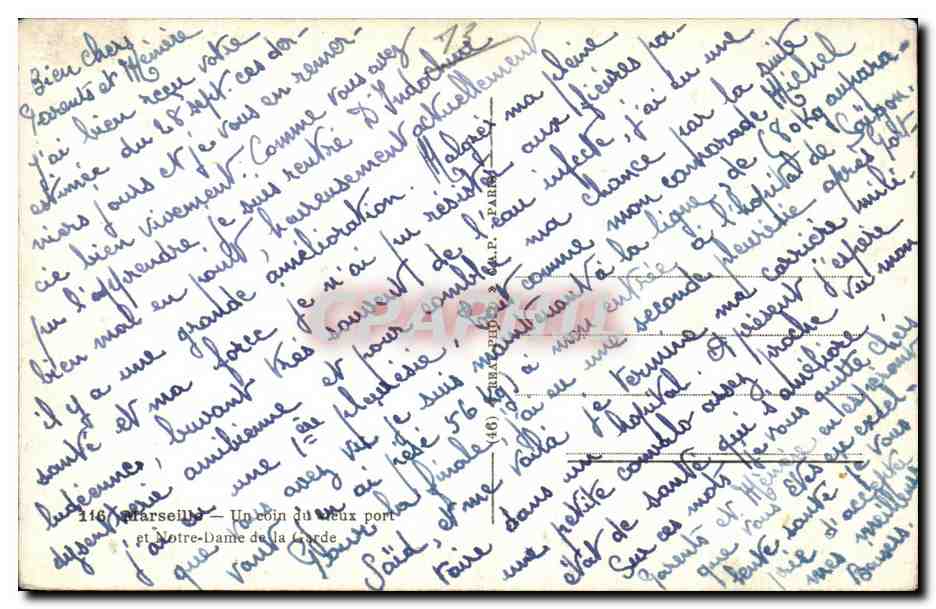 Bien chers
Parents et Mémère
J'ai bien reçu votre
estimée du 28 sept. ces der-
niers jours et je vous en remer-
cie bien vivement. Comme vous avez
pu l'apprendre, je suis rentré D'Indochine
bien mal en point, heureusement actuellement
il y a une grande amélioration. Malgré ma pleine
santé et ma force je n'ai pu resister aux fièvres pa-
ludéennes, buvant très souvent de l'eau infecte, j'ai eu une
dysenterie amibienne et pour combler ma chance par la suite
j'ai eu une 1ère pleurésie, tout comme mon camarade Michel
que vous avez vu je suis maintenant à la ligne de 80kg aupara-
vant j'en ai pesé 56 kg à mon entrée à l'hopital de Saïgon.
Pour la finale, j'ai eu une seconde pleurésie après Port-
Saïd, et me voilà je termine ma carrière mili-
taire dans un hopital. A présent j'espère
une petite convalo assez proche vu mon
état de santé qui s'améliore
Sur ces mots je vous quitte chers
Parents et Mémère en espérant
que vous êtes en excel-
lente santé je vous
prie d'accepter
mes meilleurs
Baisers.
13
116 Marseille — Un coin du vieux port
et Notre-Dame de la Garde
(46)
CPARAMA